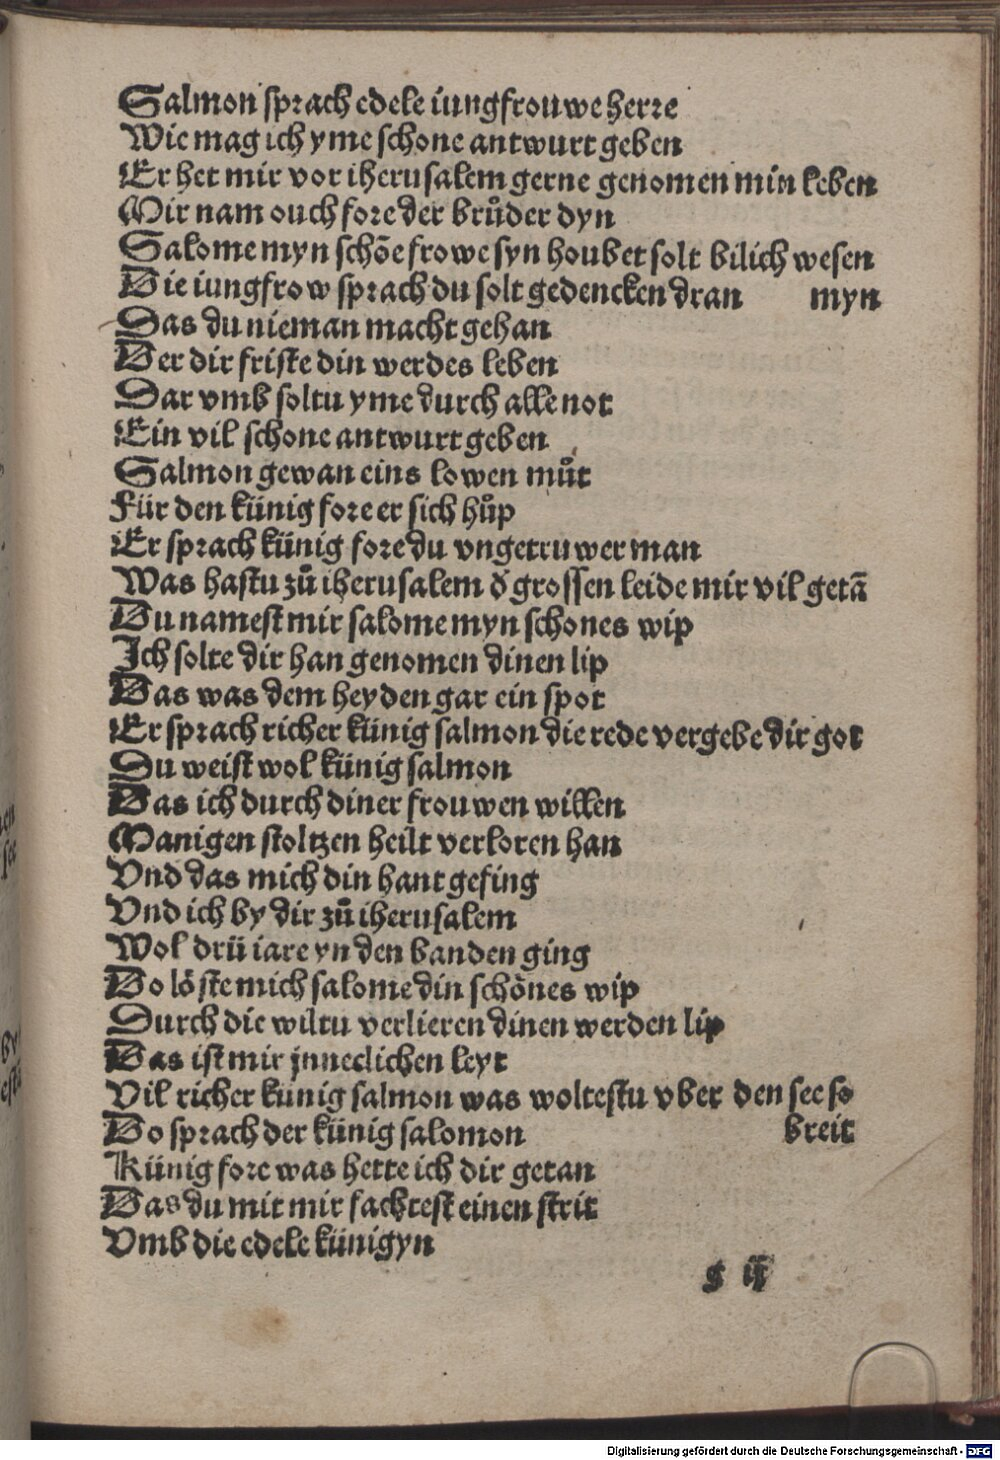 Salmon sprach edele iungfrouwe herre
Wie mag ich yme schone antwurt geben
Er het mir vor iherusalem gerne genomen min leben
Mir nam ouch fore der brůder dyn
Salome myn schōe frowe syn houbet solt bilich wesen
Die iungfrow sprach du solt gedencken dran myn
Das du nieman macht gehan
Der dir friste din werdes leben
Dar vmb soltu yme durch alle not
Ein vil schone antwurt geben
Salmon gewan eins lowen můt
Für den künig fore er sich hůp
Er sprach künig fore du vngetruwer man
Was hastu zů iherusalem d' grossen leide mir vil getā
Du namest mir salome myn schones wip
Ich solte dir han genomen dinen lip
Das was dem heyden gar ein spot
Er sprach richer künig salmon die rede vergebe dir got
Du weist wol künig salmon
Das ich durch diner frouwen willen
Manigen stoltzen heilt verloren han
Vnd das mich din hant gefing
Vnd ich by dir zů iherusalem
Wol drü iare yn den banden ging
Do löste mich salome din schönes wip
Durch die wiltu verlieren dinen werden lip
Das ist mir jnneclichen leyt
Vil richer künig salmon was woltestu vber den see so
Do sprach der künig salomon breit
Künig fore was hette ich dir getan
Das du mit mir fachtest einen strit
Vmb die edele künigyn
g ij
Digitalisierung gefördert durch die Deutsche Forschungsgemeinschaft - DFG